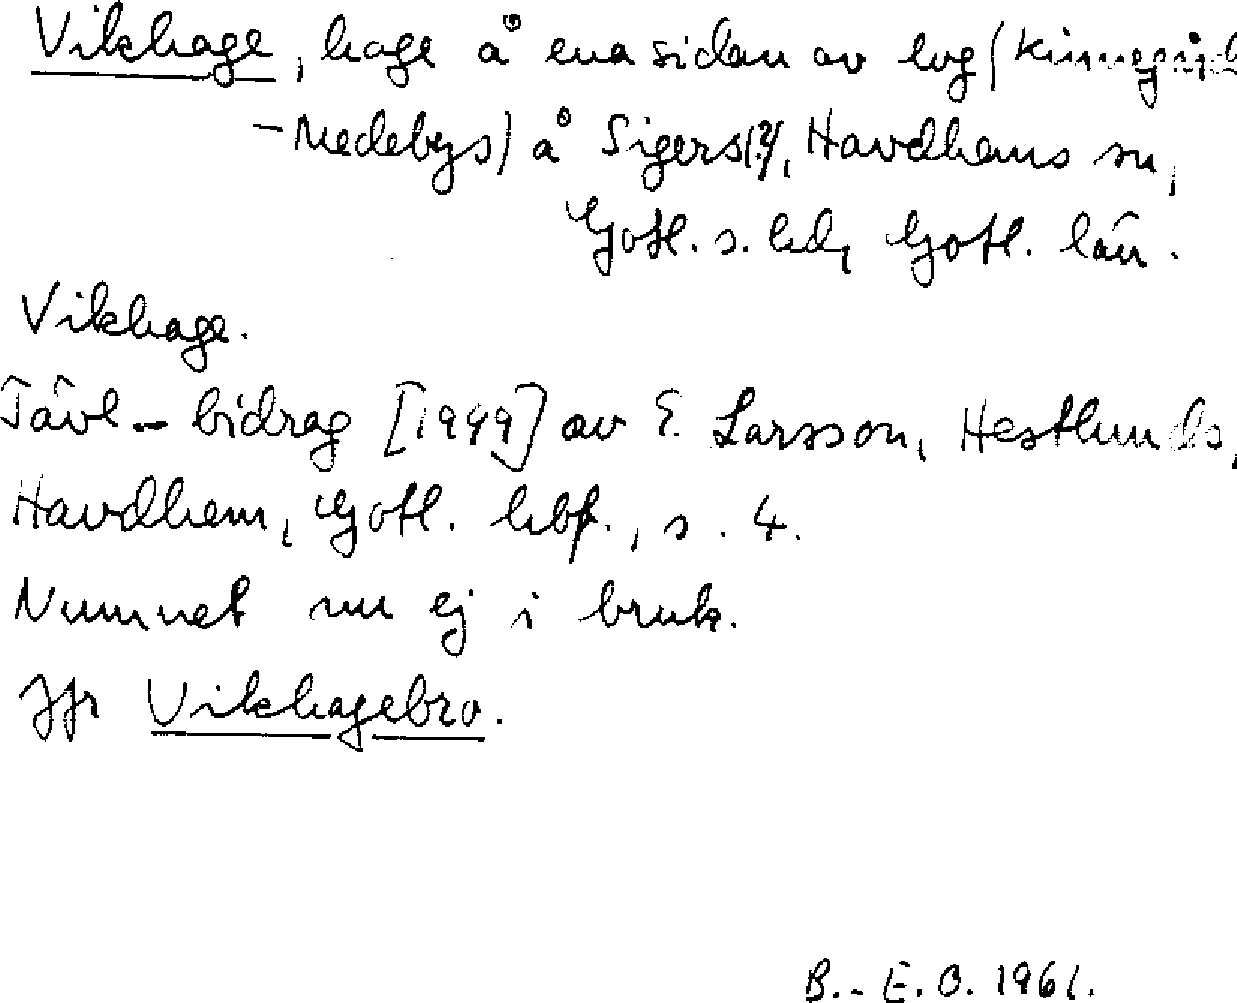 Vikhage, hage å ena sidan av lvg (Kinnegårds
- Nedebys) å Sigers(?), Havdhems sn,
Gotl. s. hd, Gotl. län.
Vikhage.
Tävl-bidrag [1949] av E. Larsson, Hestlunds,
Havdhem, Gotl. hbf., s. 4.
Numnet nu ej i bruk.
Jfr Vikhagebro.
B.-E. O. 1961.